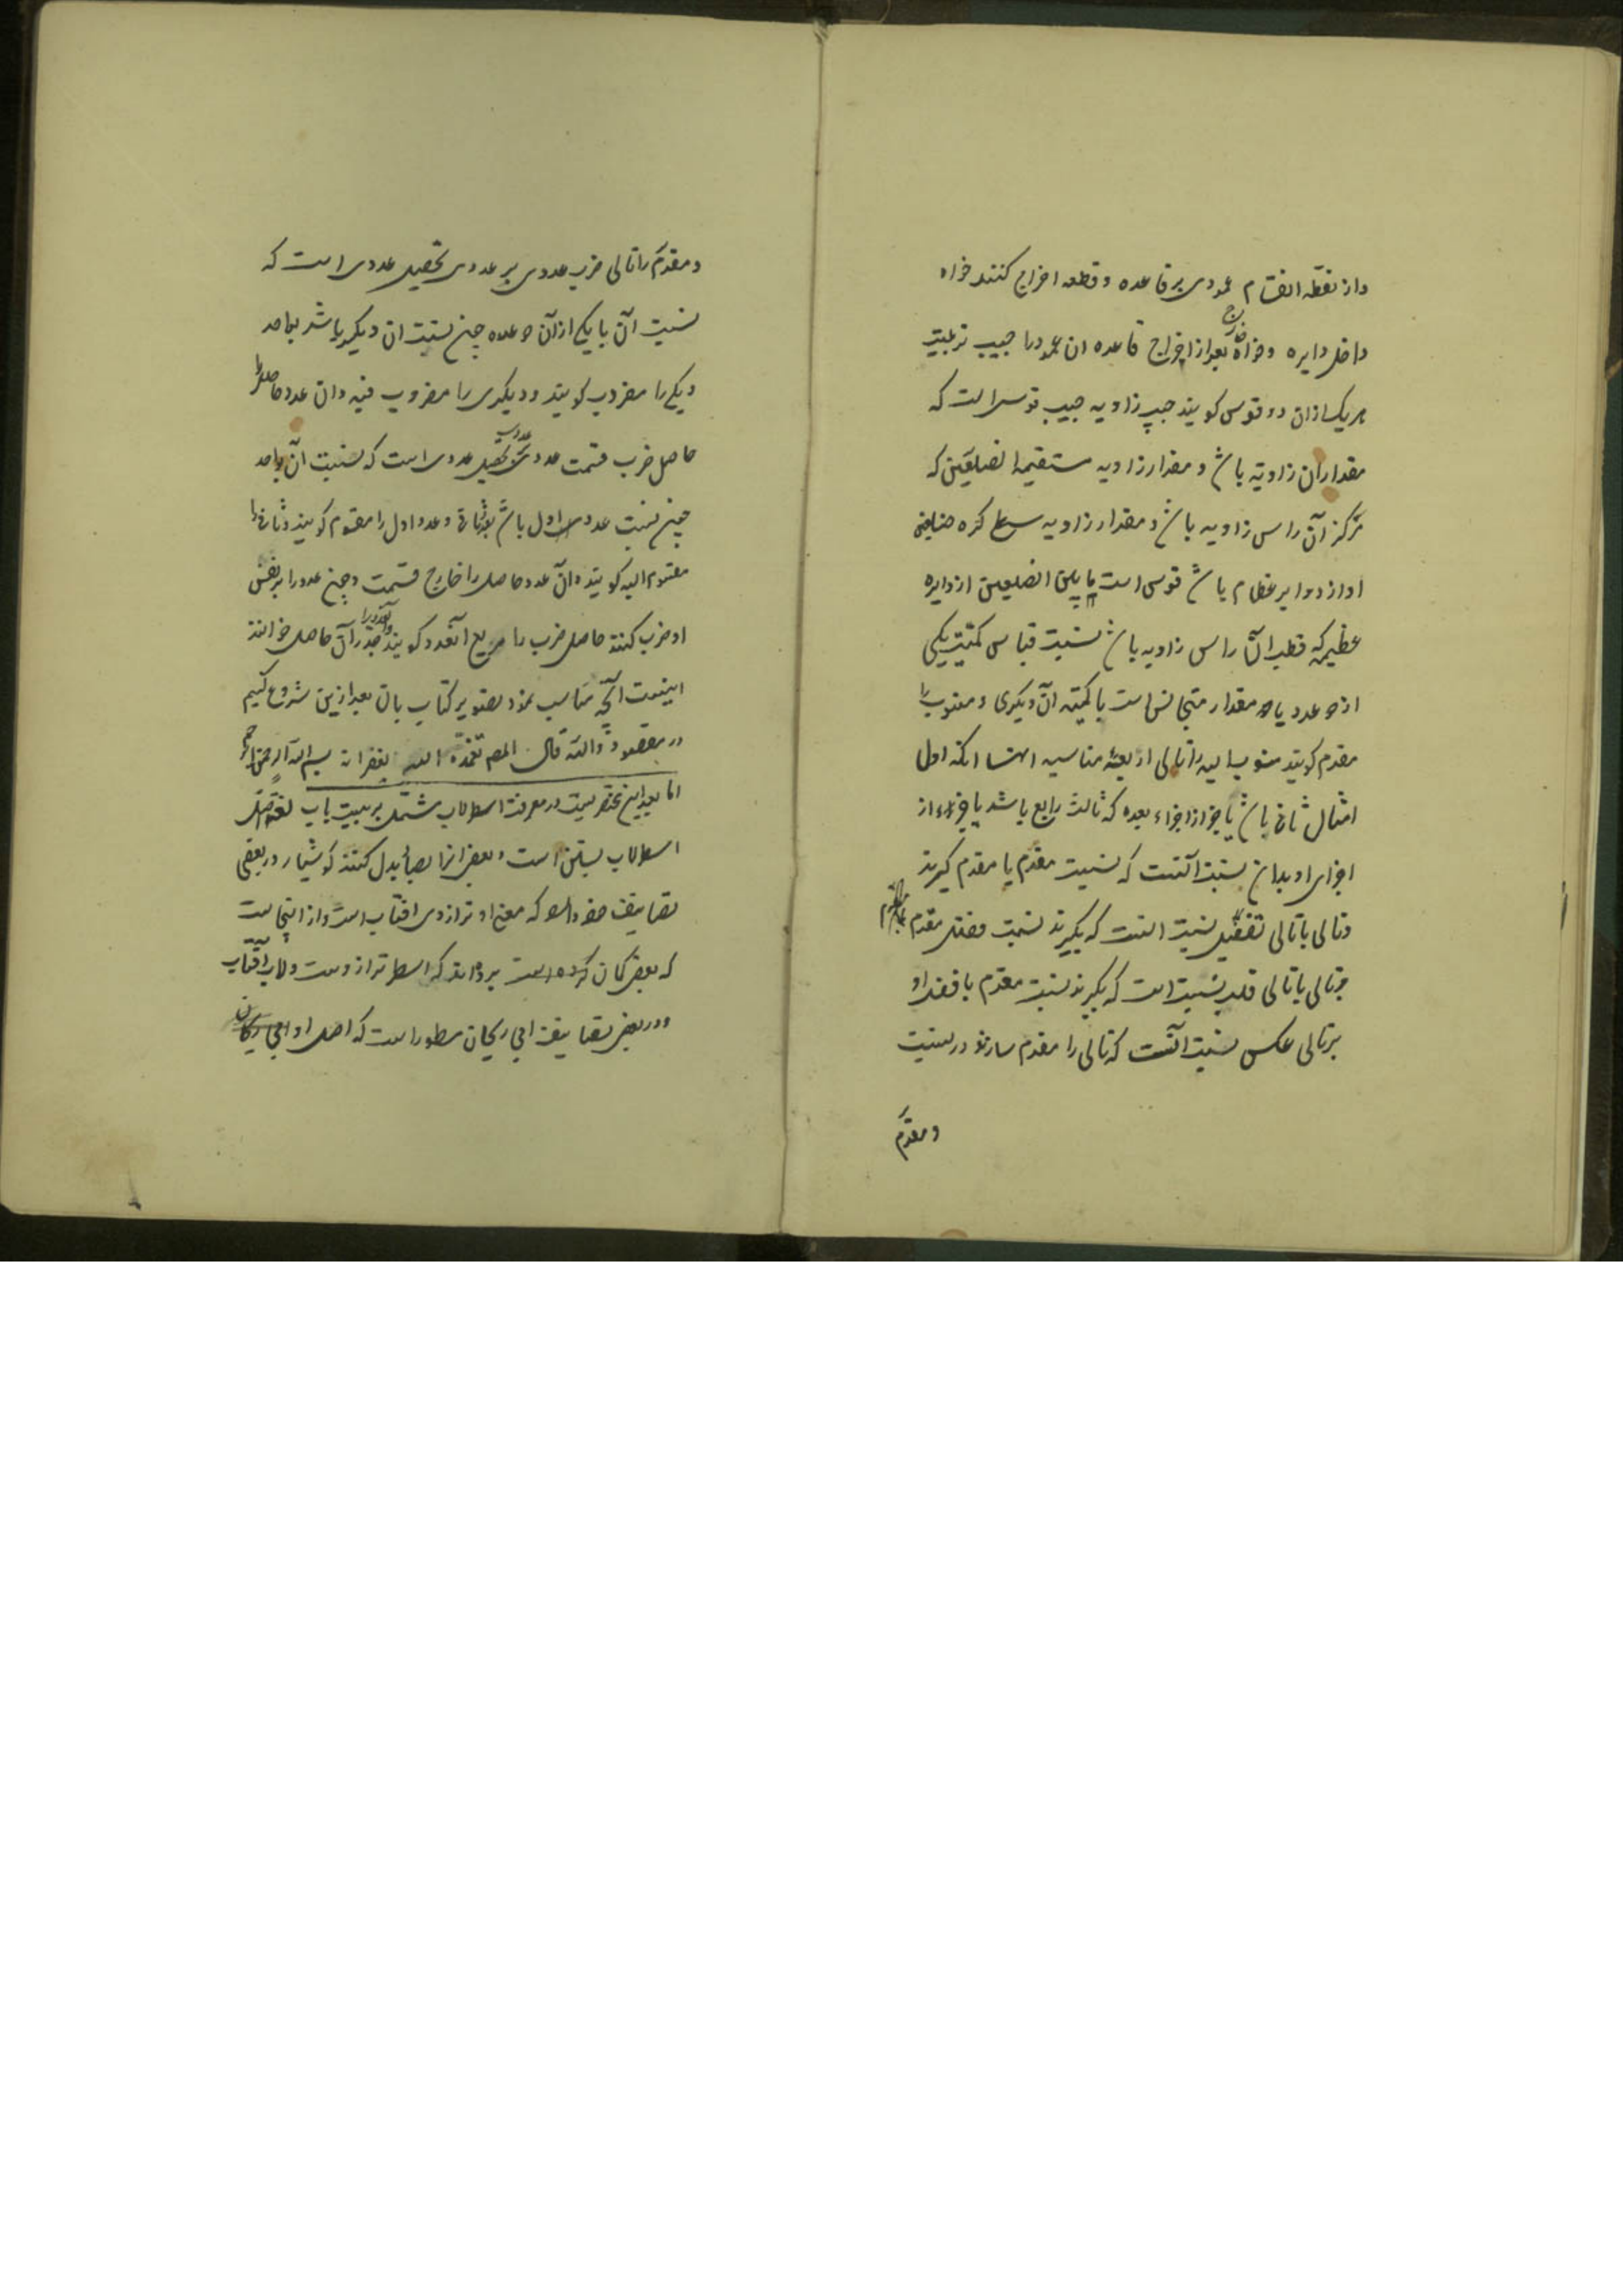 واز نقطه انقسام عمودی بر قاعده و قطعه اخراج کنند خواه
داخل دایره و خواه خارج بعد از اخراج قاعده ان عمود را جیب ترتیب
هر یک از ان دو قوس کویند جیب زاویه جیب قوسی است که
مقدار ان زاویه باشد و مقدار زاویه مستقیمة الضلعین که
مرکز آن راس زاویه باشد و مقدار زاویه سطح کره ضلعین
او از دوایر عظام باشد قوسی است مابین الضلعین از دایره
عظیمه که قطب آن راس زاویه باشد نسبت قیاس کمیت یکی
از دو عدد یا دو مقدار متجانس است با کمیت آن دیکری و منسوب را
مقدم کویند منسوب الیه را تالی اربعه متناسبه انها انکه اول
امثال ثانی باشد یا جزء از اجزاء بعده که ثالث رابع باشد یا جزء از
اجزای او بدان نسبت آنست که نسبت مقدم با مقدم کیرند
وتالی با تالی تفضیل نسبت انست که بکیرند نسبت فضل مقدم
برتالی با تالی قلب نسبت است که بکیرند نسبت مقدم با فضل او
برتالی عکس نسبت آنست که تالی را مقدم سازند در نسبت
ومقدم
ومقدم را تالی ضرب عددی بر عددی تحصیل عددی است که
نسبت آن با یکی از آن دو عدد چون نسبت ان دیکر باشد بواحد
ویکی را مضروب کویند و دیکری را مضروب فیه وان عدد حاصل را
حاصل ضرب قسمت عددی بر عددی تحصیل عددی است که نسبت آن بواحد
چون نسبت عدد اول باشد بعدد ثانی وعدد اول را مقسوم کویند وثانی را
مقسوم الیه کویند وآن عدد حاصل را خارج قسمت وچون عدد را بر نفس
او ضرب کنند حاصل ضرب را مربع آنعدد کویند وآنعدد را جذر آن حاصل خوانند
اینست آنچه مناسب نمود تصویر کتاب بان بعد ازین شروع کنیم
در مقصود والله قال المصم تغمده الله بغفرانه بسم الله الرحمن الرحیم
اما بعد این مختصریست در معرفت اسطرلاب مشتمل بر بیست باب
اسطرلاب بسین است وبعضی انرا بصاد بدل کنند کوشیار در بعضی
تصانیف خود آورده که معنی او ترازوی افتاب است واز اینجاست
که بعضی کمان کرده است برده‌اند که اسطر ترازوست ولاب آفتاب
ودر بعضی تصانیف ابی ریحان مسطور است که اصل او